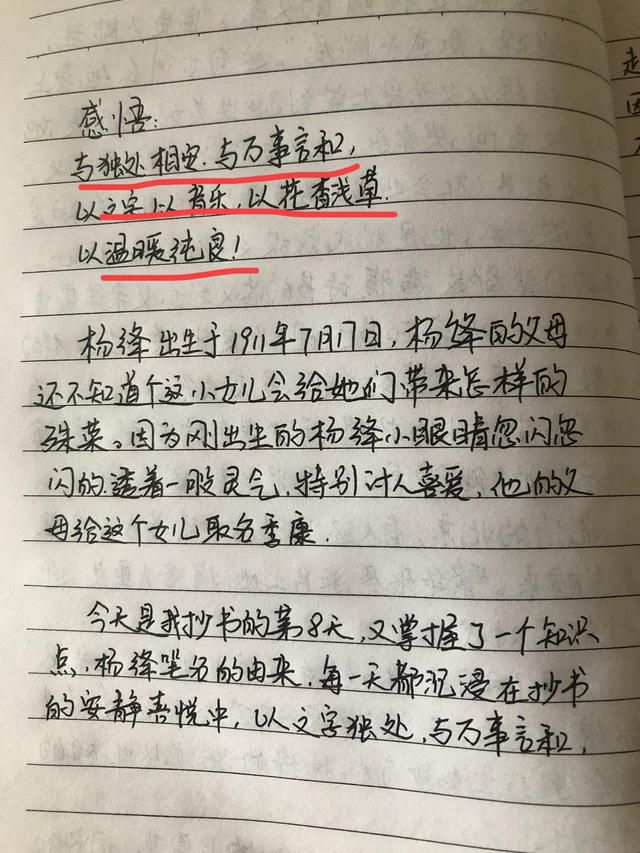 感悟:
与独处相安.与万事言和,
以文字以音乐,以花香浅草.
以温暖纯良!
杨绛出生于1911年7月17日,杨绛的父母
还不知道个这小女儿会给她们带来怎样的
殊荣。因为刚出生的杨绛小眼睛忽闪忽
闪的.透着一股灵气,特别讨人喜爱,他的父
母给这个女儿取名季康.
今天是我抄书的第8天,又掌握了一个知识
点,杨绛笔名的由来,每一天都沉浸在抄书
的安静喜悦中,以文字独处,与万事言和,